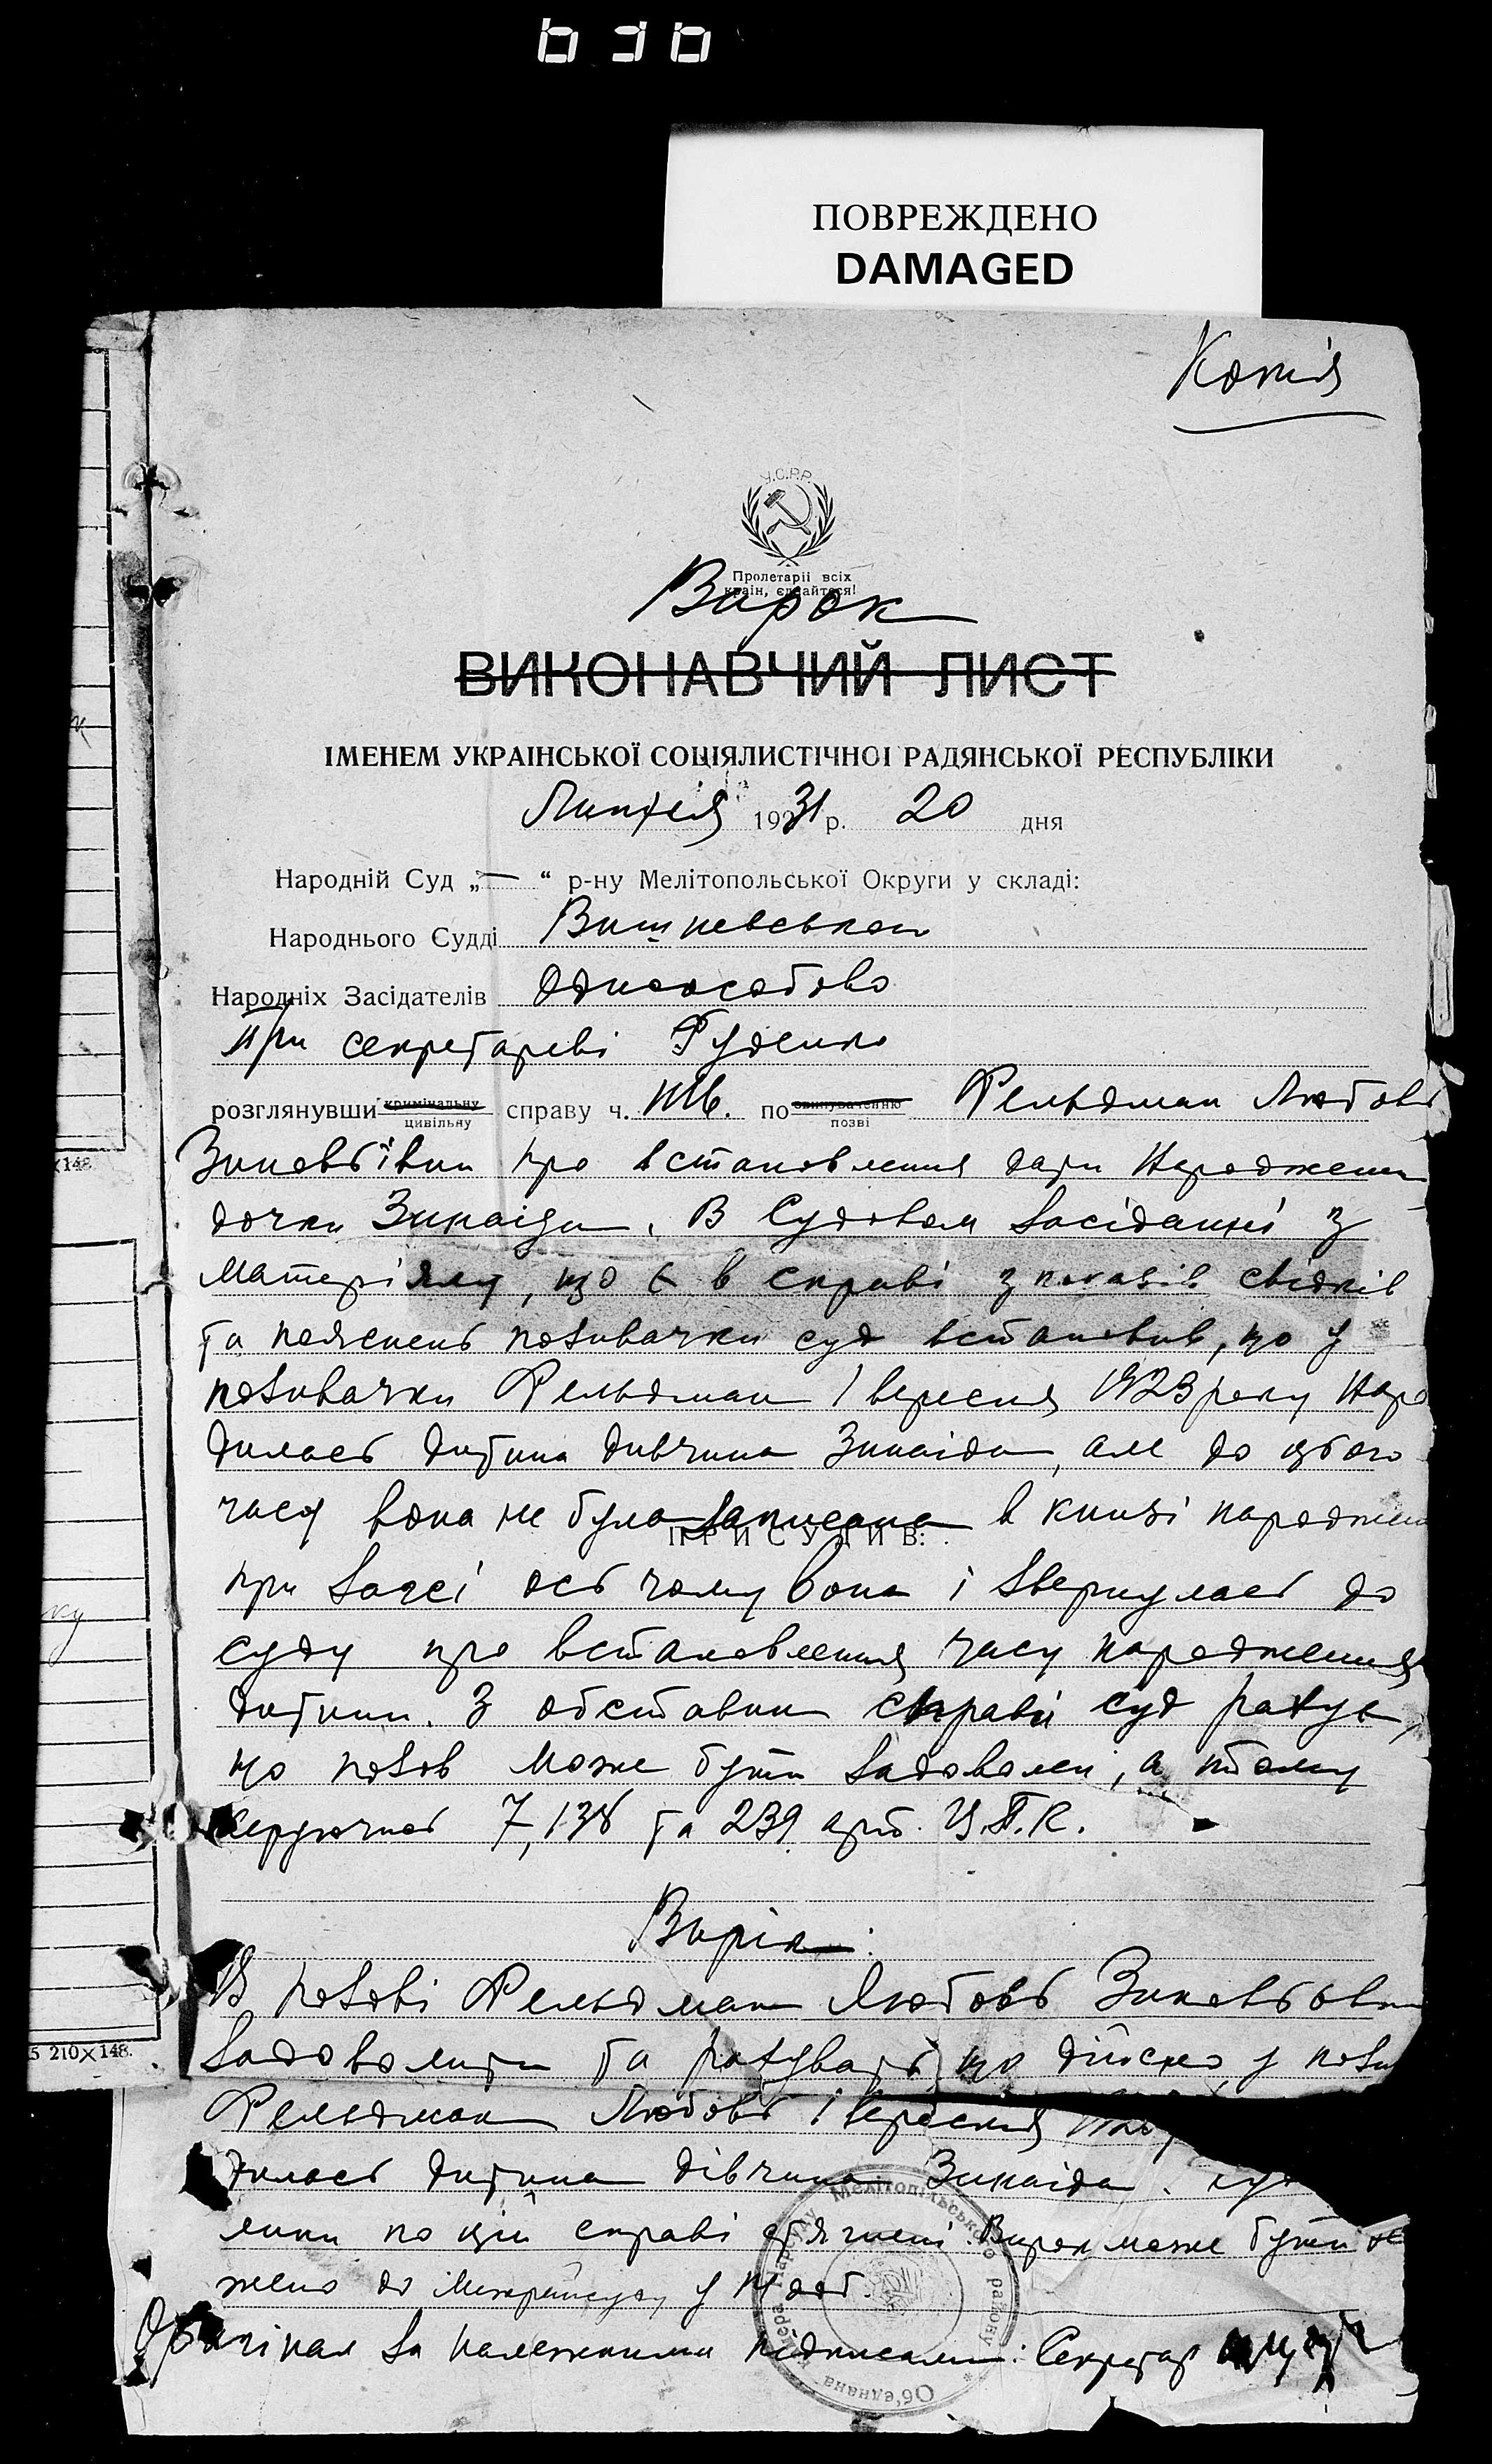 ПОВРЕЖДЕНО
DAMAGED
Копія
У.С.Р.Р.
Пролетарії всіх
країн, єднайтеся!
Вирок
ВИКОНАВЧИЙ ЛИСТ
ІМЕНЕМ УКРАІНСЬКОЇ СОЦІЯЛИСТІЧНОІ РАДЯНСЬКОЇ РЕСПУБЛІКИ
Липня 1931 р. 20 дня
Народній Суд „—“ р-ну Мелітопольської Округи у складі:
Народнього Судді Вишневської
Народніх Засідателів Одноособово
при секретареві Руденко
розглянувши кримінальну цивільну справу ч. по звинуваченню позві Фельдман Любові
Зиновьївни про встановлення дати народження
дочки Зинаїди. В судовом засіданні з
матеріялу, що є в справі з показів свідків
та пояснень позивачки суд встановив, що у
позивачки Фельдман 1 вересня 1923 року наро
дилась дитина дивчина Зинаіда, але до цього
часу вона не була записана в книзі народжен
ПРИСУДИВ:
при Загсі ось чому вона і звернулась до
суду про встановлення часу народження
дитини. З обставин справи суд рахує,
що позов може бути задоволен, а тому
керуючись 7, 138 та 239 арт. Ц.П.К.
Вирік:
В позові Фельдман Любовь Зиновьєвни
задоволити та рахувать, що дійсно у пози
Фельдман Любовь 1 вересня
дилась дитина дівчина Зинаіда.
по цій справі Вирок може бути
жено до у
Орігінал за належними підписами: Секретар
Камера Нарсуду Мелітопільського району * Об'єднана
5 210×148.
×148.